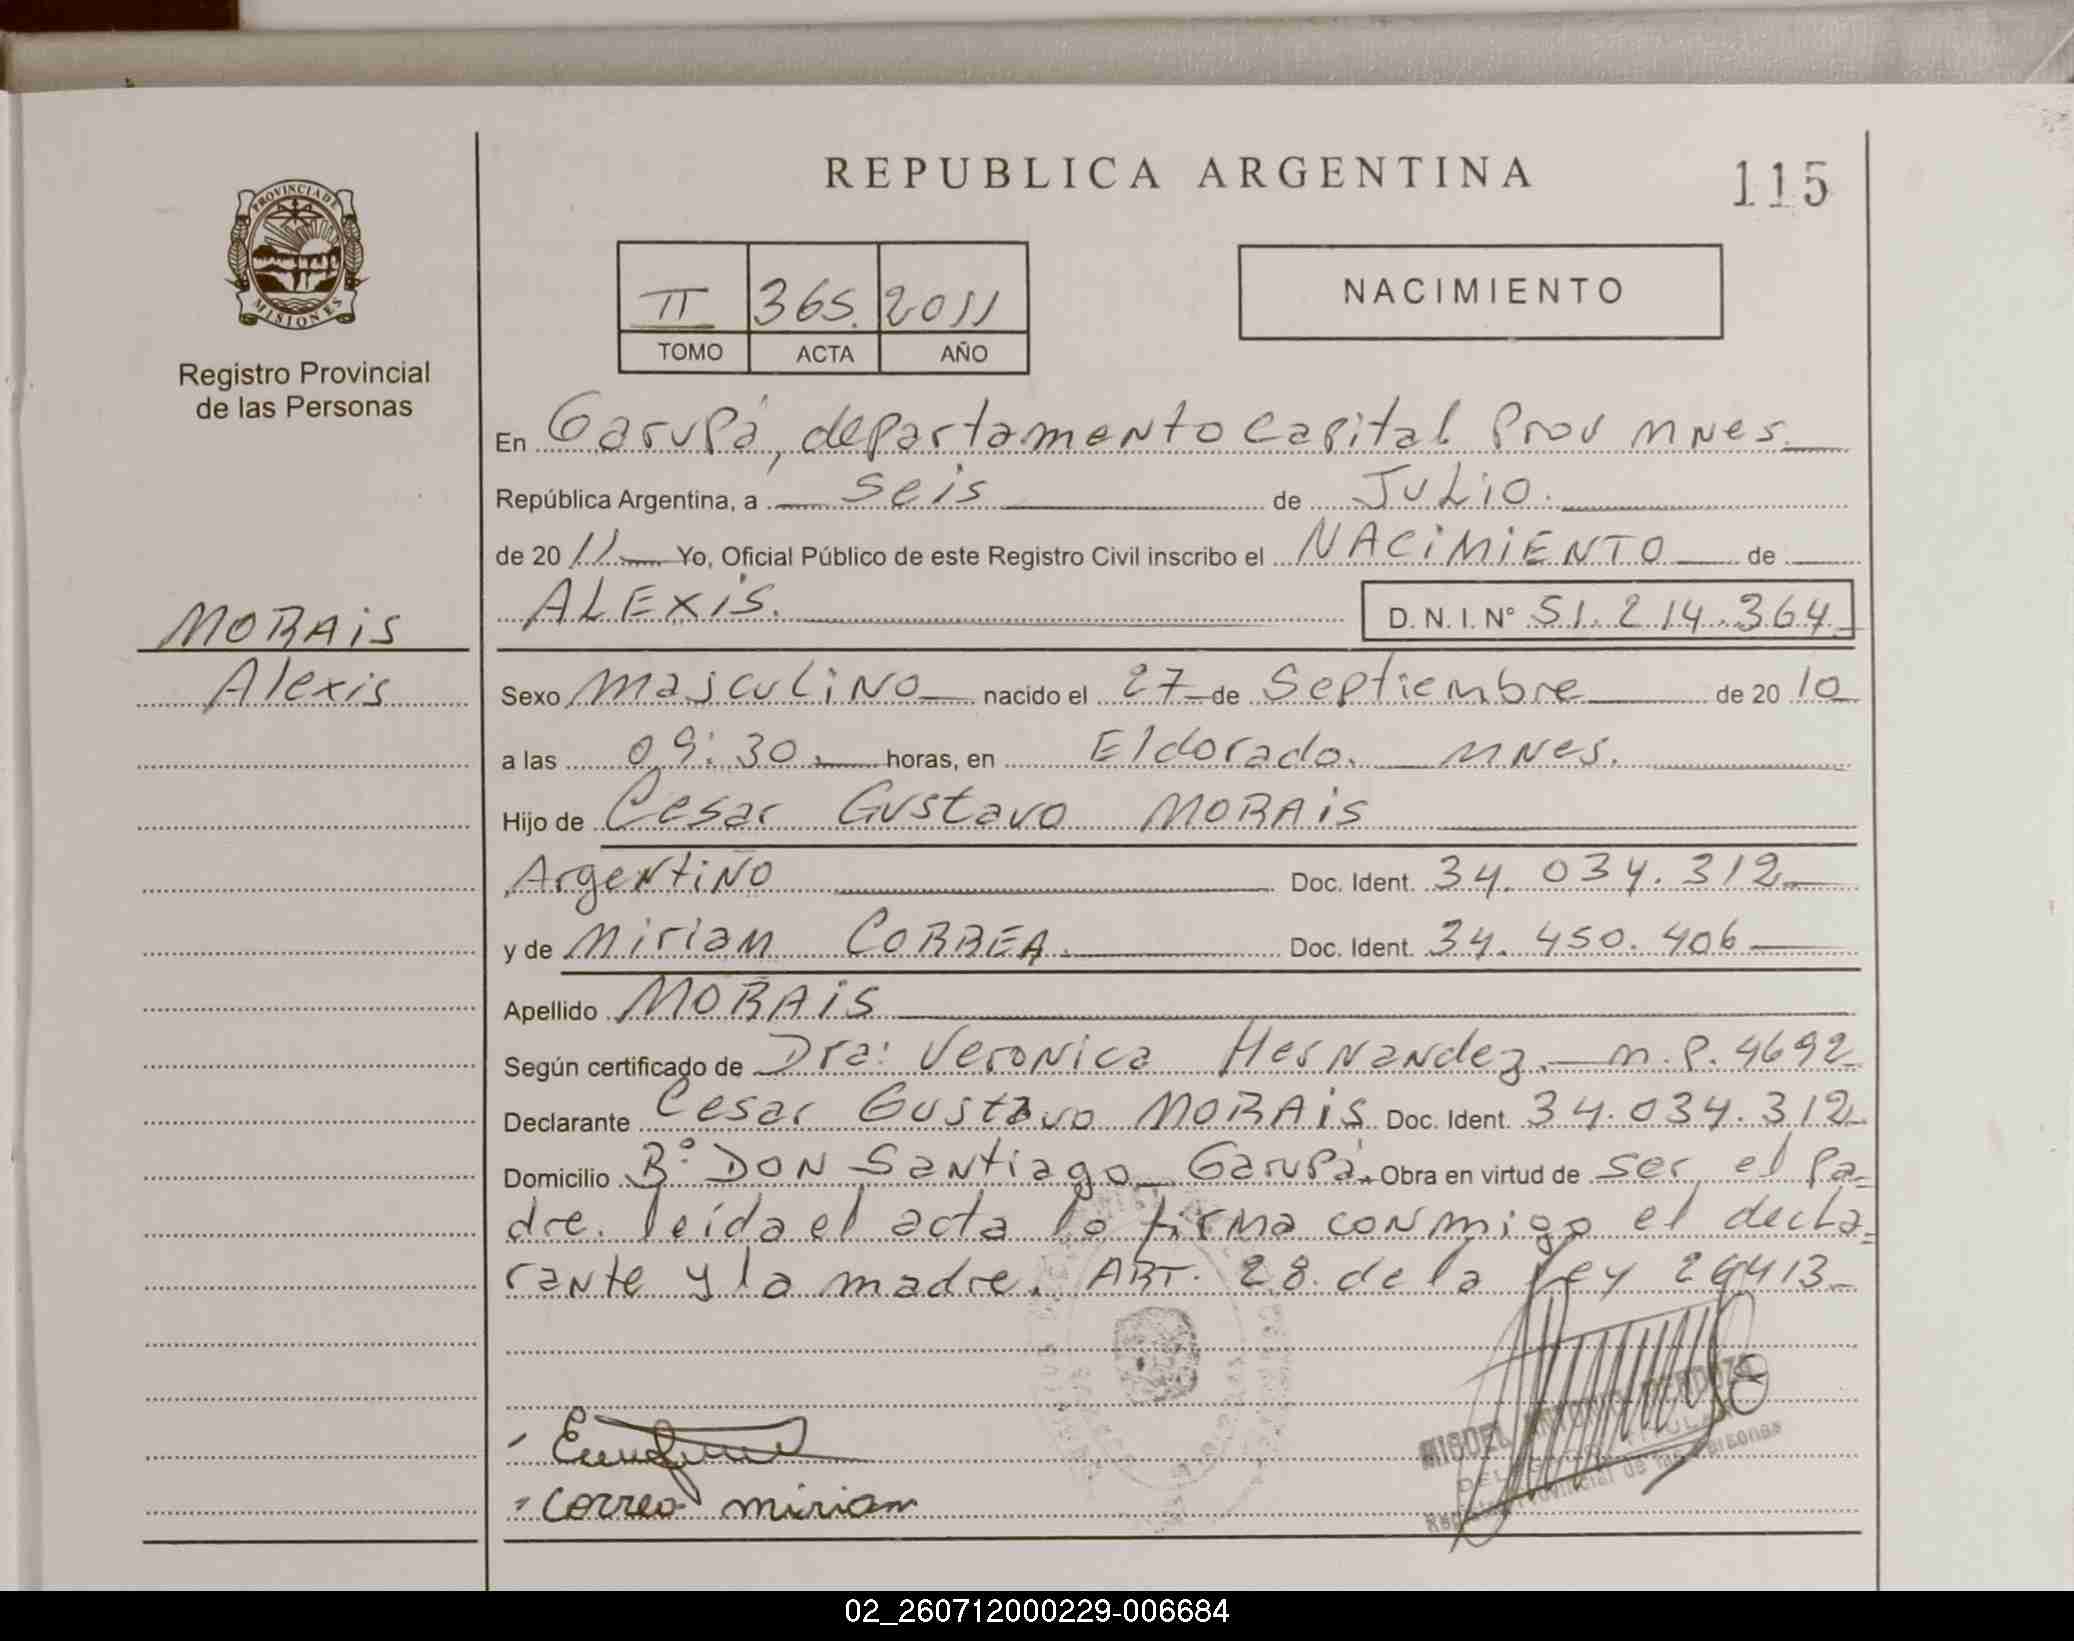 REPUBLICA ARGENTINA
115
PROVINCIA DE
MISIONES
Registro Provincial
de las Personas
II 365. 2011
TOMO ACTA AÑO
NACIMIENTO
En Garupá, departamento Capital Prov Mnes.
República Argentina, a seis de JULIO.
de 20 11 Yo, Oficial Público de este Registro Civil inscribo el NACIMIENTO de
ALEXIS. D. N. I. N° 51.214.364
MORAIS
Alexis
Sexo masculino nacido el 27 de Septiembre de 20 10
a las 09:30 horas, en Eldorado. Mnes.
Hijo de Cesar Gustavo MORAIS
Argentino Doc. Ident. 34.034.312
y de Miriam CORREA. Doc. Ident. 34.450.406
Apellido MORAIS
Según certificado de Dra: Veronica Hernandez. m.p. 4692
Declarante Cesar Gustavo MORAIS Doc. Ident. 34.034.312
Domicilio B° DON Santiago Garupá. Obra en virtud de ser el pa=
dre. leída el acta la firma conmigo el decla=
rante y la madre. ART. 28. de la ley 26413
MIGUEL ANTONIO MENDOZA
DELEGADO TITULAR
Registro Provincial de las Personas
Correa miriam
02_260712000229-006684